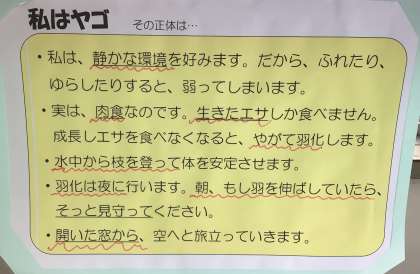 私はヤゴ その正体は…
・私は、静かな環境を好みます。だから、ふれたり、
ゆらしたりすると、弱ってしまいます。
・実は、肉食なのです。生きたエサしか食べません。
成長しエサを食べなくなると、やがて羽化します。
・水中から枝を登って体を安定させます。
・羽化は夜に行います。朝、もし羽を伸ばしていたら、
そっと見守ってください。
・開いた窓から、空へと旅立っていきます。